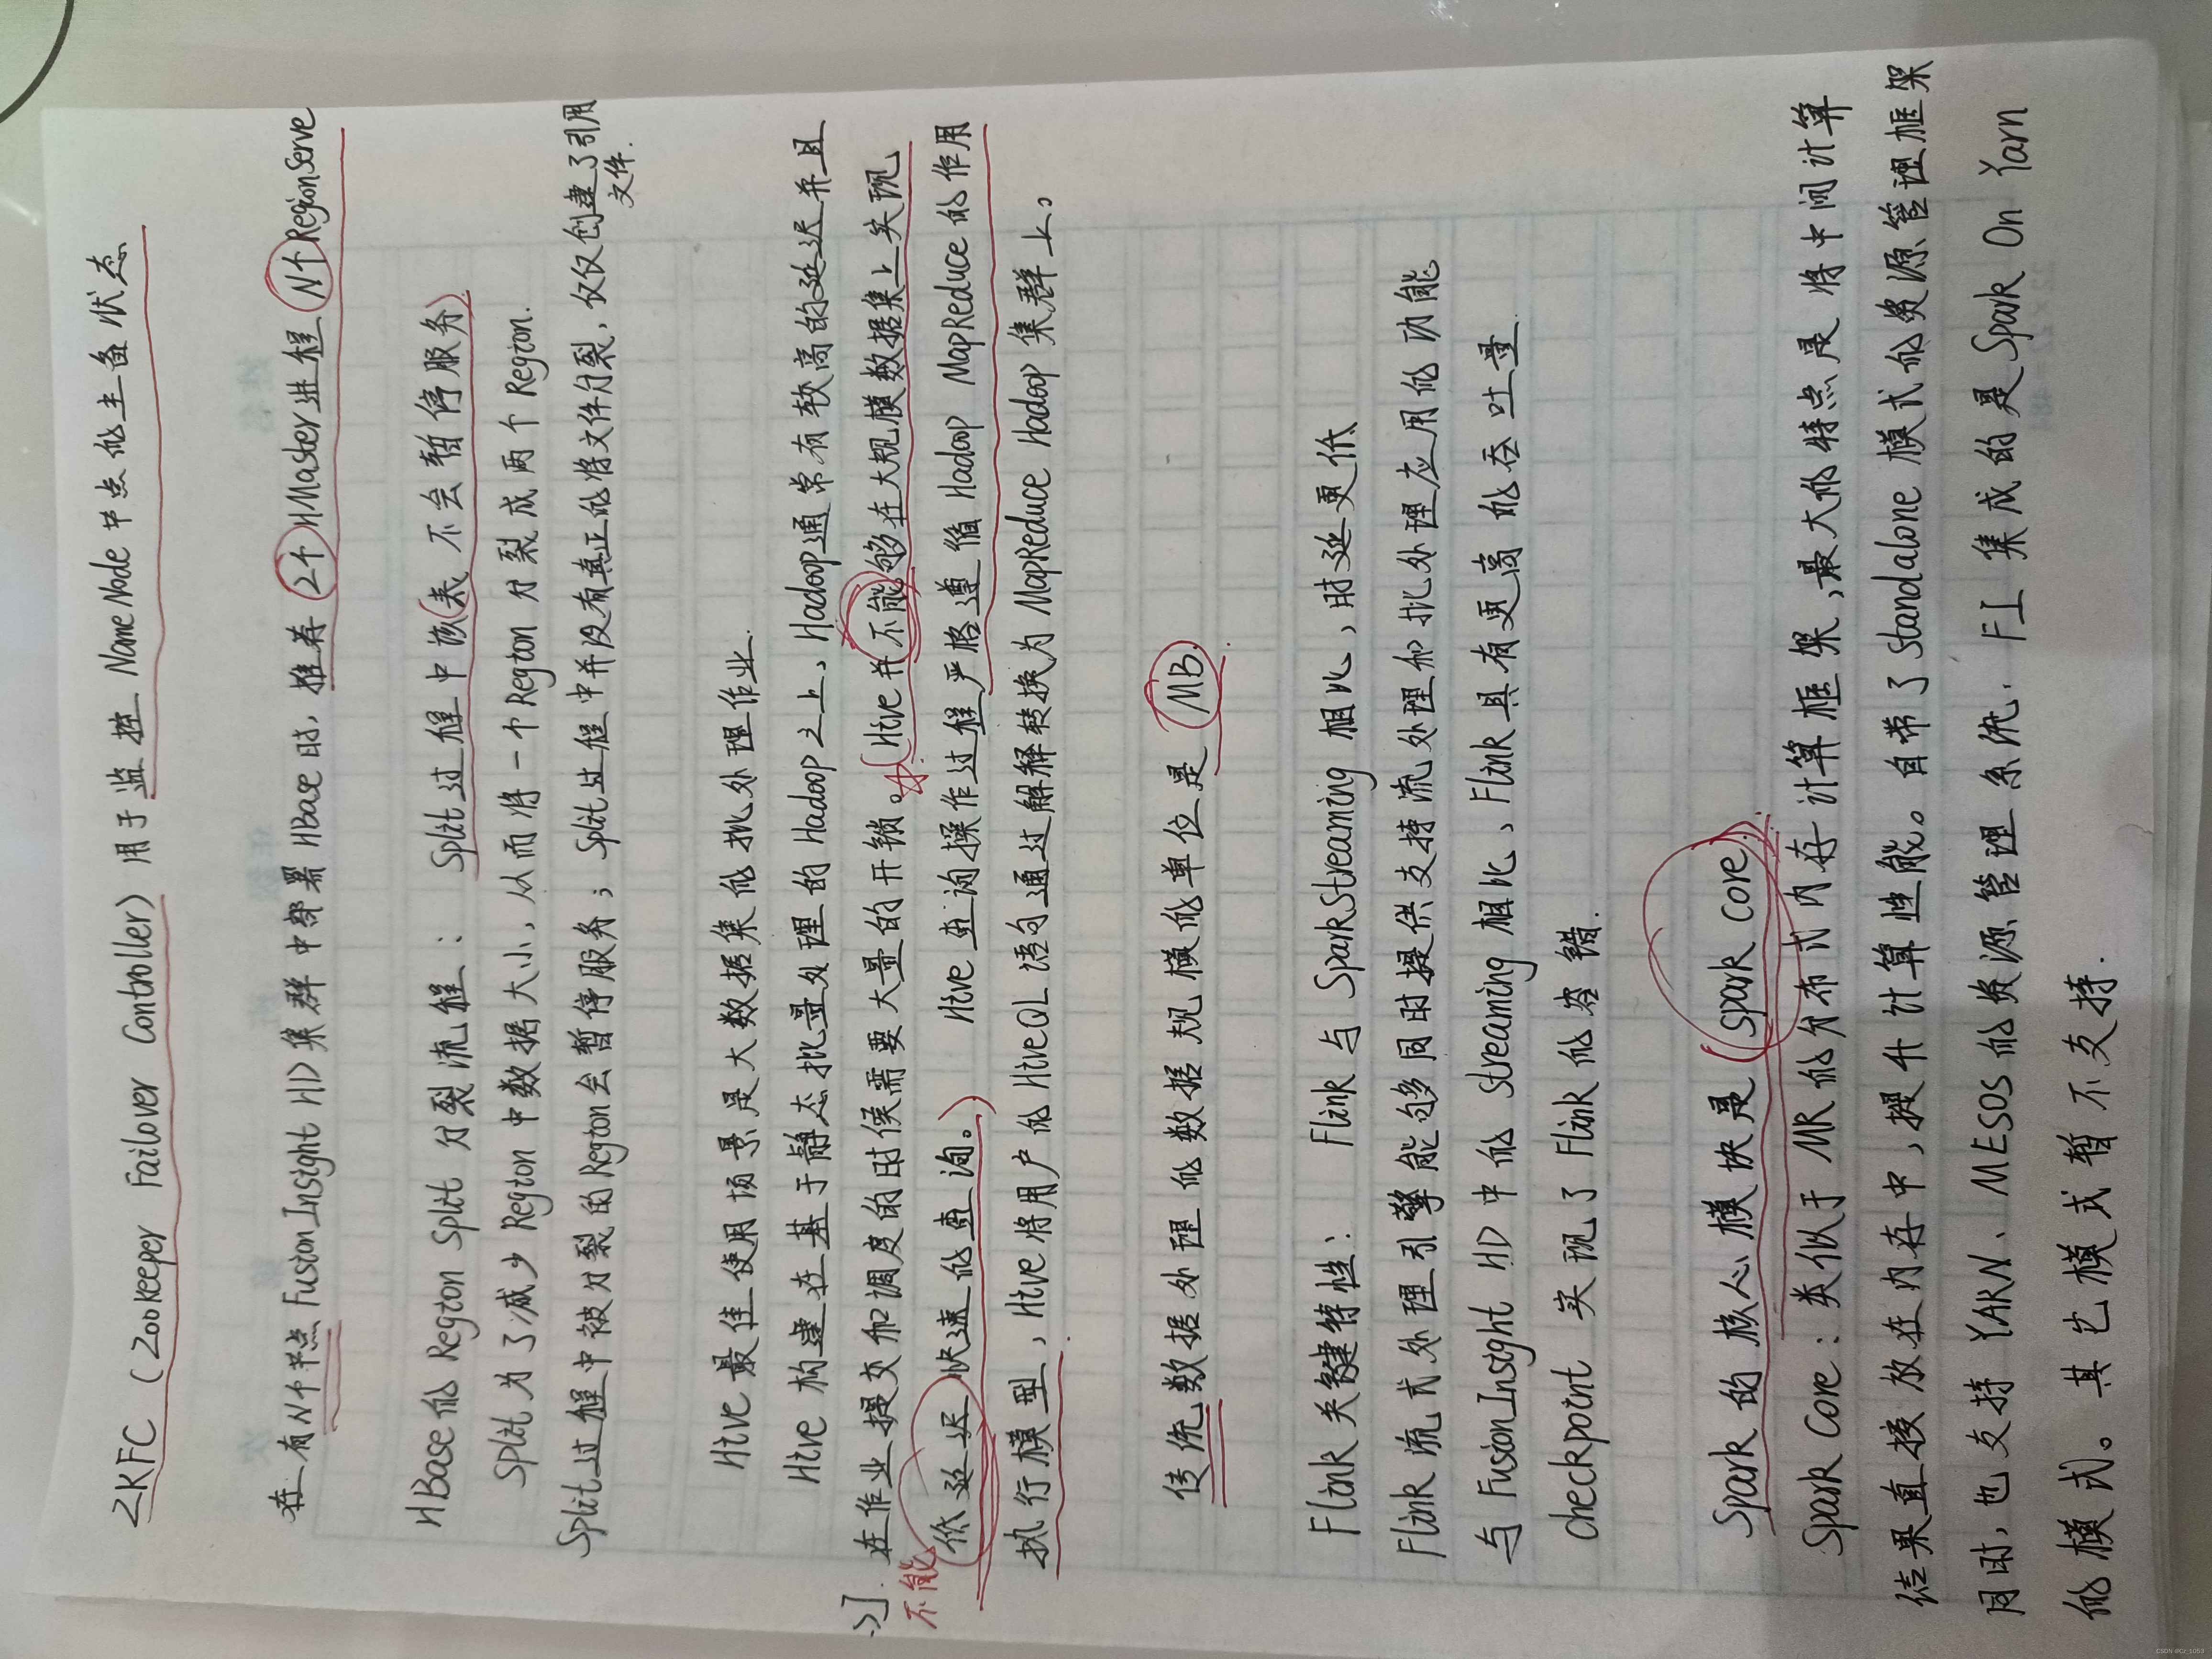 ZKFC (Zookeeper Failover Controller) 用于监控 NameNode 节点的主备状态
在有N个节点 FusionInsight HD 集群中部署 HBase 时, 推荐 2个 HMaster进程 N个 RegionServe
HBase的 Region Split 分裂流程: Split过程中该(表 不会暂停服务)
Split为了减少 Region 中数据大小, 从而将一个Region 分裂成两个 Region.
Split过程中被分裂的Region会暂停服务; Split过程中并没有真正的将文件分裂, 仅仅创建了引用
文件.
Hive 最佳使用场景是大数据集的批处理作业.
Hive 构建在基于静态批量处理的Hadoop之上, Hadoop通常有较高的延迟并且
在作业提交和调度的时候需要大量的开销。(Hive并不能够在大规模数据集上实现
不能
低延迟快速的查询。) Hive 查询操作过程严格遵循 Hadoop MapReduce 的作用
执行模型, Hive将用户的HiveQL语句通过解释转换为 MapReduce Hadoop 集群上。
传统数据处理的数据规模的单位是 MB.
Flink 关键特性: Flink 与 SparkStreaming 相比, 时延更低
Flink 流式处理引擎能够同时提供支持流处理和批处理应用的功能
与 FusionInsight HD 中的 Streaming 相比、Flink具有更高的吞吐量.
checkpoint 实现了 Flink 的容错.
Spark 的核心模块是 (Spark Core)
Spark Core: 类似于 MR 的分布式内存计算框架, 最大的特点是将中间计算
结果直接放在内存中, 提升计算性能。自带了 Standalone 模式的资源管理框架
同时, 也支持 YARN、MESOS 的资源管理系统. FI 集成的是 Spark On Yarn
的模式。其它模式暂不支持.